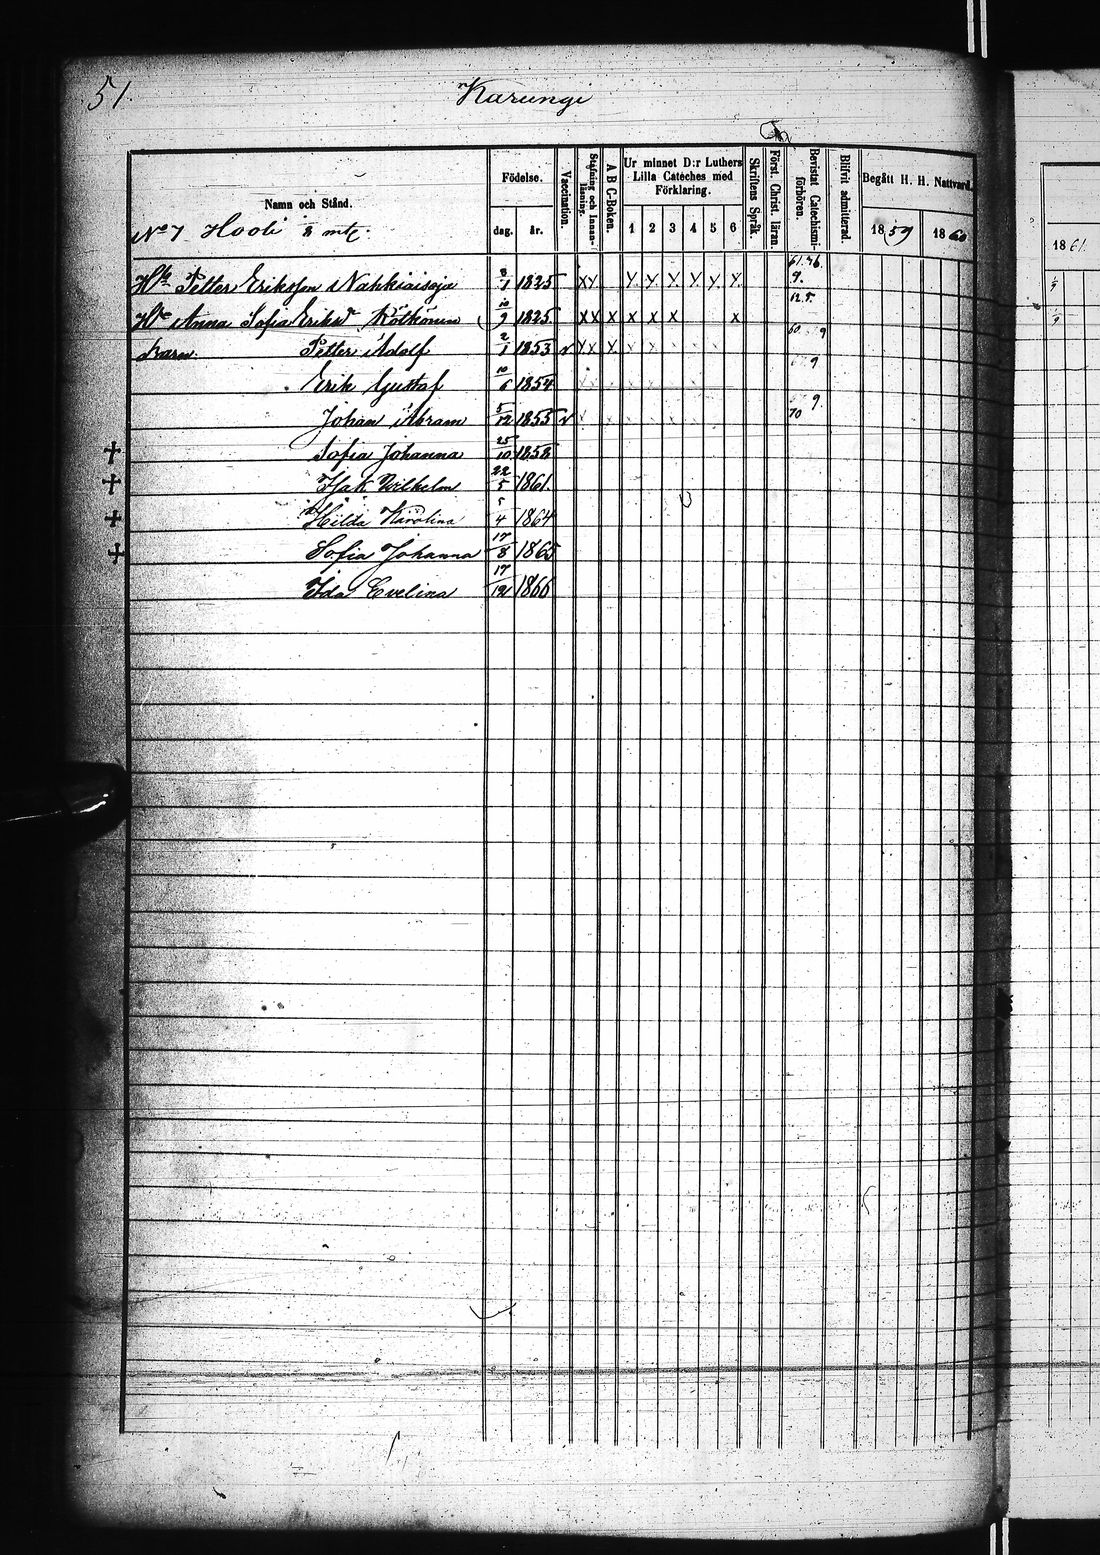 51.
Karungi
Namn och Stånd.
Födelse.
dag.
år.
Vaccination.
Stafning och Innanläsning.
A B C-Boken.
Ur minnet D:r Luthers
Lilla Cateches med
Förklaring.
1 2 3 4 5 6
Skriftens Språk.
Först. Christ. läran.
Bevistat Catechismi-
förhören.
Blifvit admitterad.
Begått H. H. Nattvard.
1859 1860
1861.
No 7 Hooli mtl.
Petter Eriksson Nahkiaisoja 8/1 1825 x x y y y y y y
Hu Anna Sofia Eriksd 10/9 1825 x x x x x x x
Barn: Petter Adolf 2/1 1853
Erik Gustaf 10/6 1854
Johan Abram 5/12 1855
+ Sofia Johanna 25/10 1858
+ Isak Wilhelm 22/5 1861.
+ Hilda Karolina 5/4 1864
+ Sofia Johanna 17/8 1865
Ida Evelina 17/12 1866